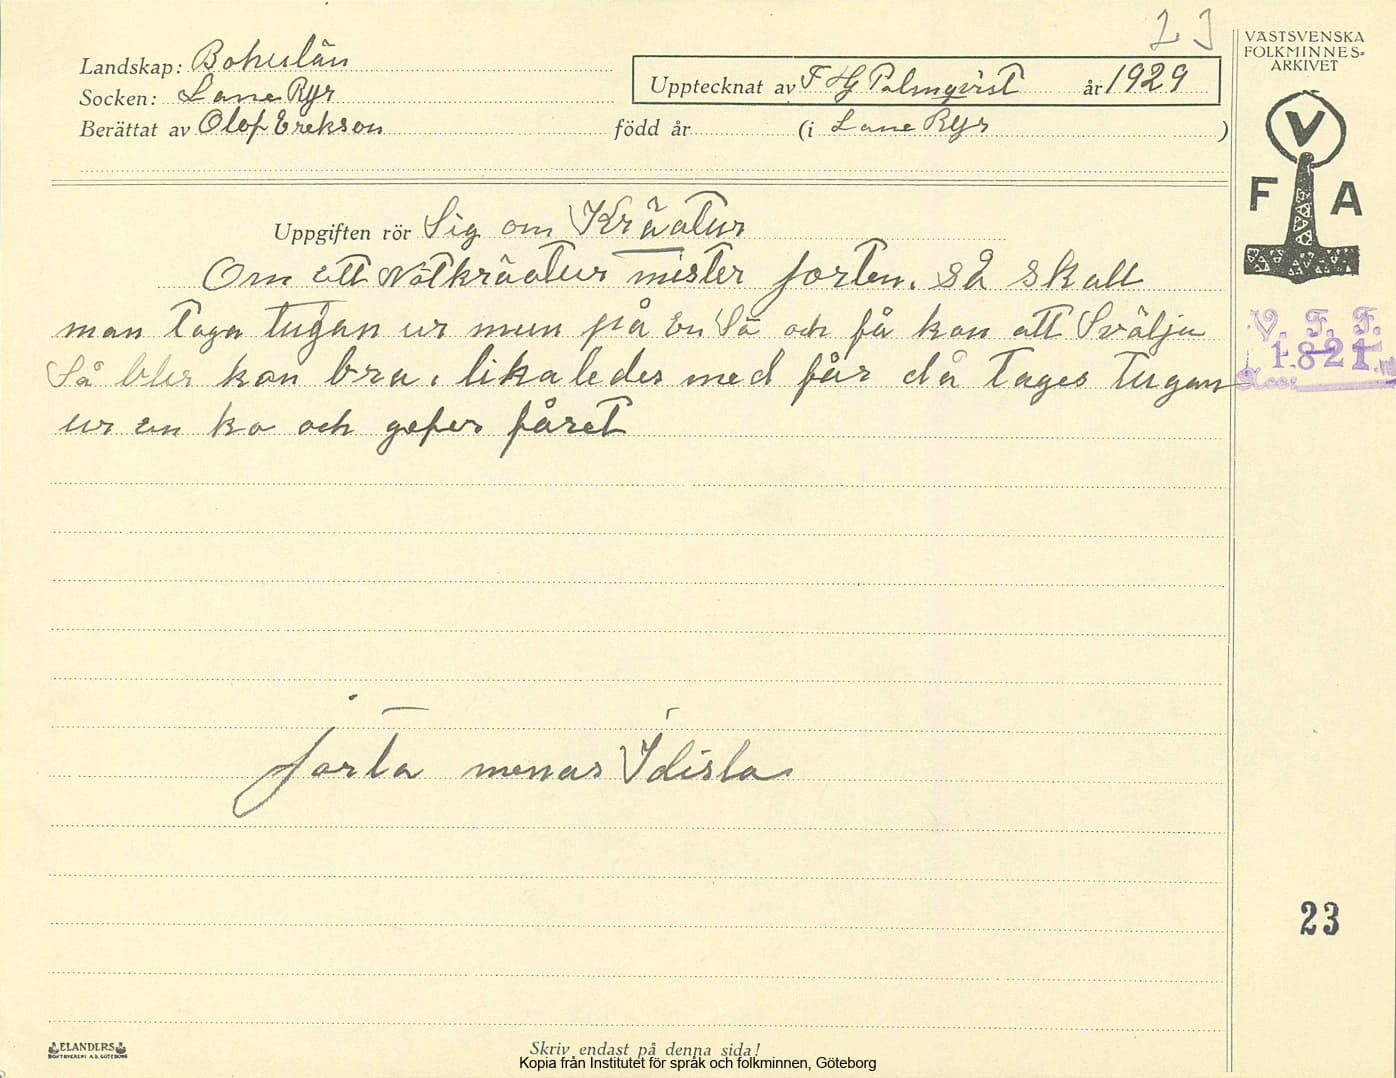 23
VÄSTSVENSKA
FOLKMINNES-
ARKIVET
Landskap: Bohuslän
Socken: Lane Ryr
Upptecknat av F Hj Palmqvist år 1929
Berättat av Olof Erekson född år (i Lane Ryr )
V
F A
Uppgiften rör Sig om Kräatur
Om ett Nötkräatur mister jorten. så skall
man taga tugan ur mun på En Så och få kon att Svälja
Så blir kon bra. likaledes med får då tages tugan
ur en ko och gefes fåret
V. F. F.
1821
jorta menas Idisla
23
ELANDERS
BOKTRYCKERI A.B. GÖTEBORG
Skriv endast på denna sida!
Kopia från Institutet för språk och folkminnen, Göteborg